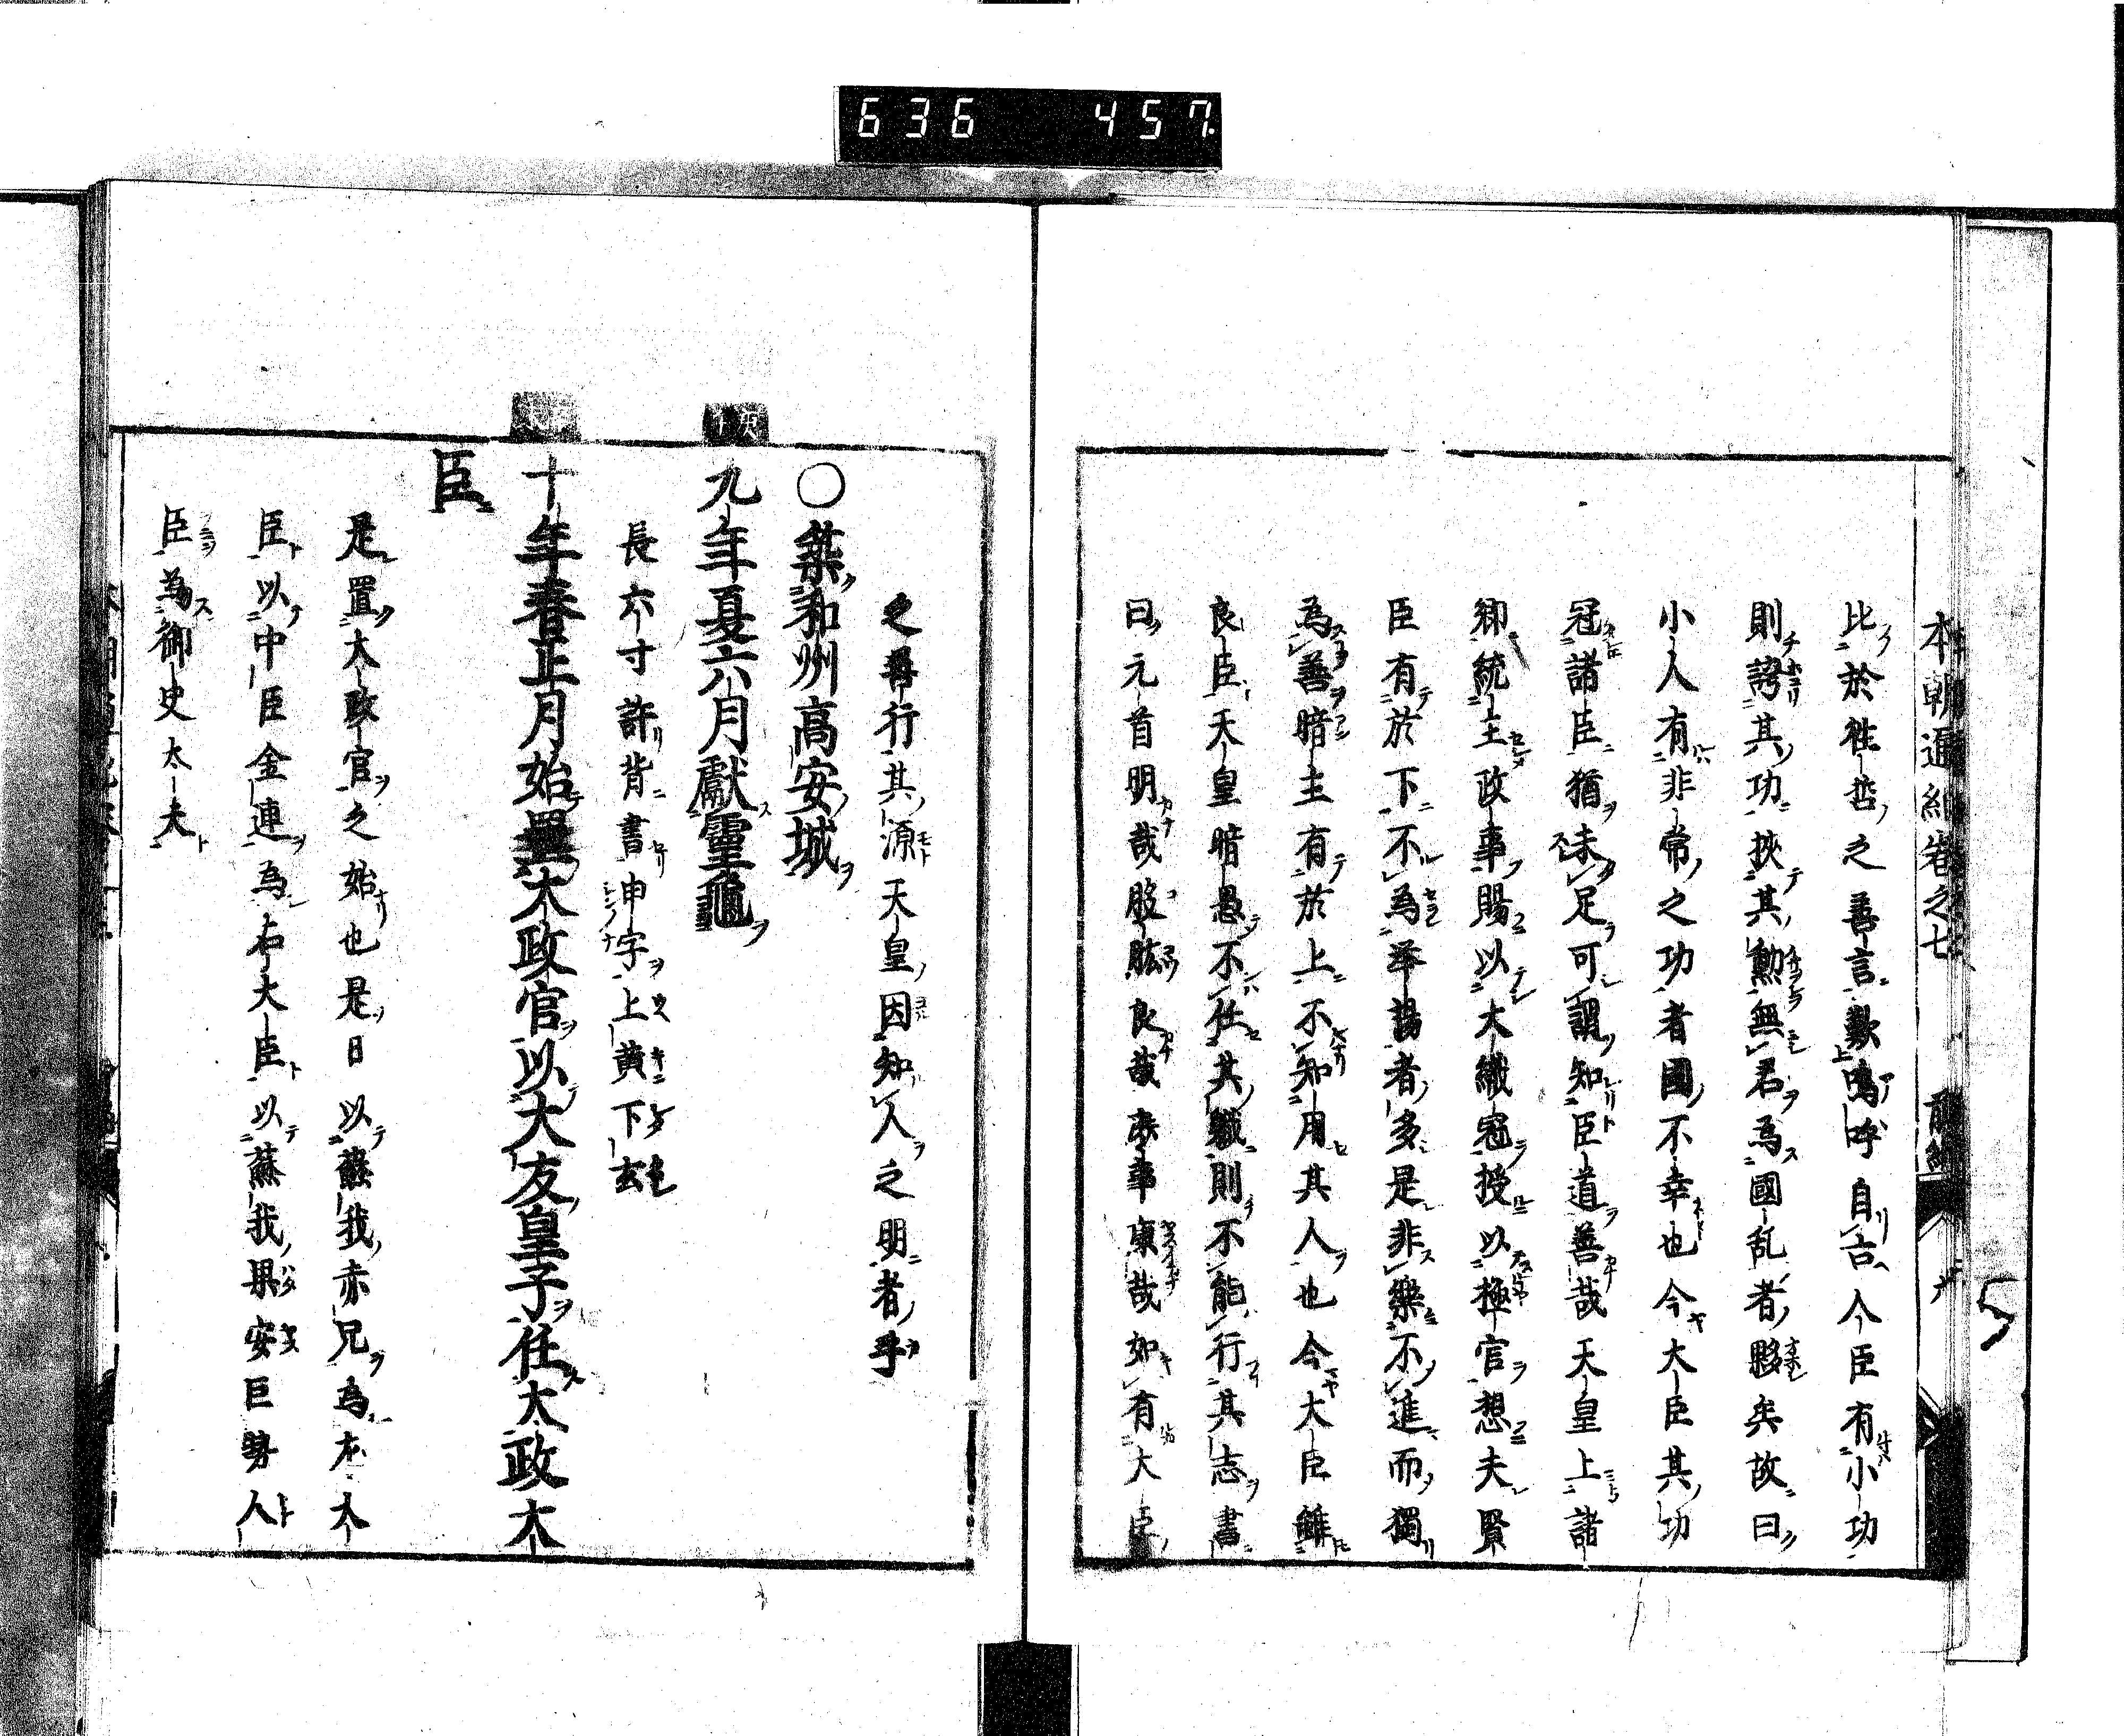 636 457
本朝通紀卷之七 前編
比於往哲之善言歎嗚呼自古人臣有小功
則誇其功挾其勲無君為國乱者夥矣故曰
小人有非常之功者國不幸也今大臣其功
冠諸臣猶未足可謂知臣道善哉天皇上諸
卿統主政事賜以大織冠授以極官想夫賢
臣有於下不為举揚者多是非樂不進而獨
為善暗主有於上不知用其人也今大臣雖
良臣天皇暗愚不任其職則不能行其志書
曰元首明哉股肱良哉庶事康哉如有大臣
之善行其源天皇因知人之明者乎
○築和州高安城
九年夏六月獻靈龜
長六寸許背書申字上黄下玄
十年春正月始置太政官以大友皇子任太政大
臣
是置太政官之始也是日以蘇我赤兄為左大
臣以中臣金連為右大臣以蘇我果安巨勢人
臣為御史太夫
5